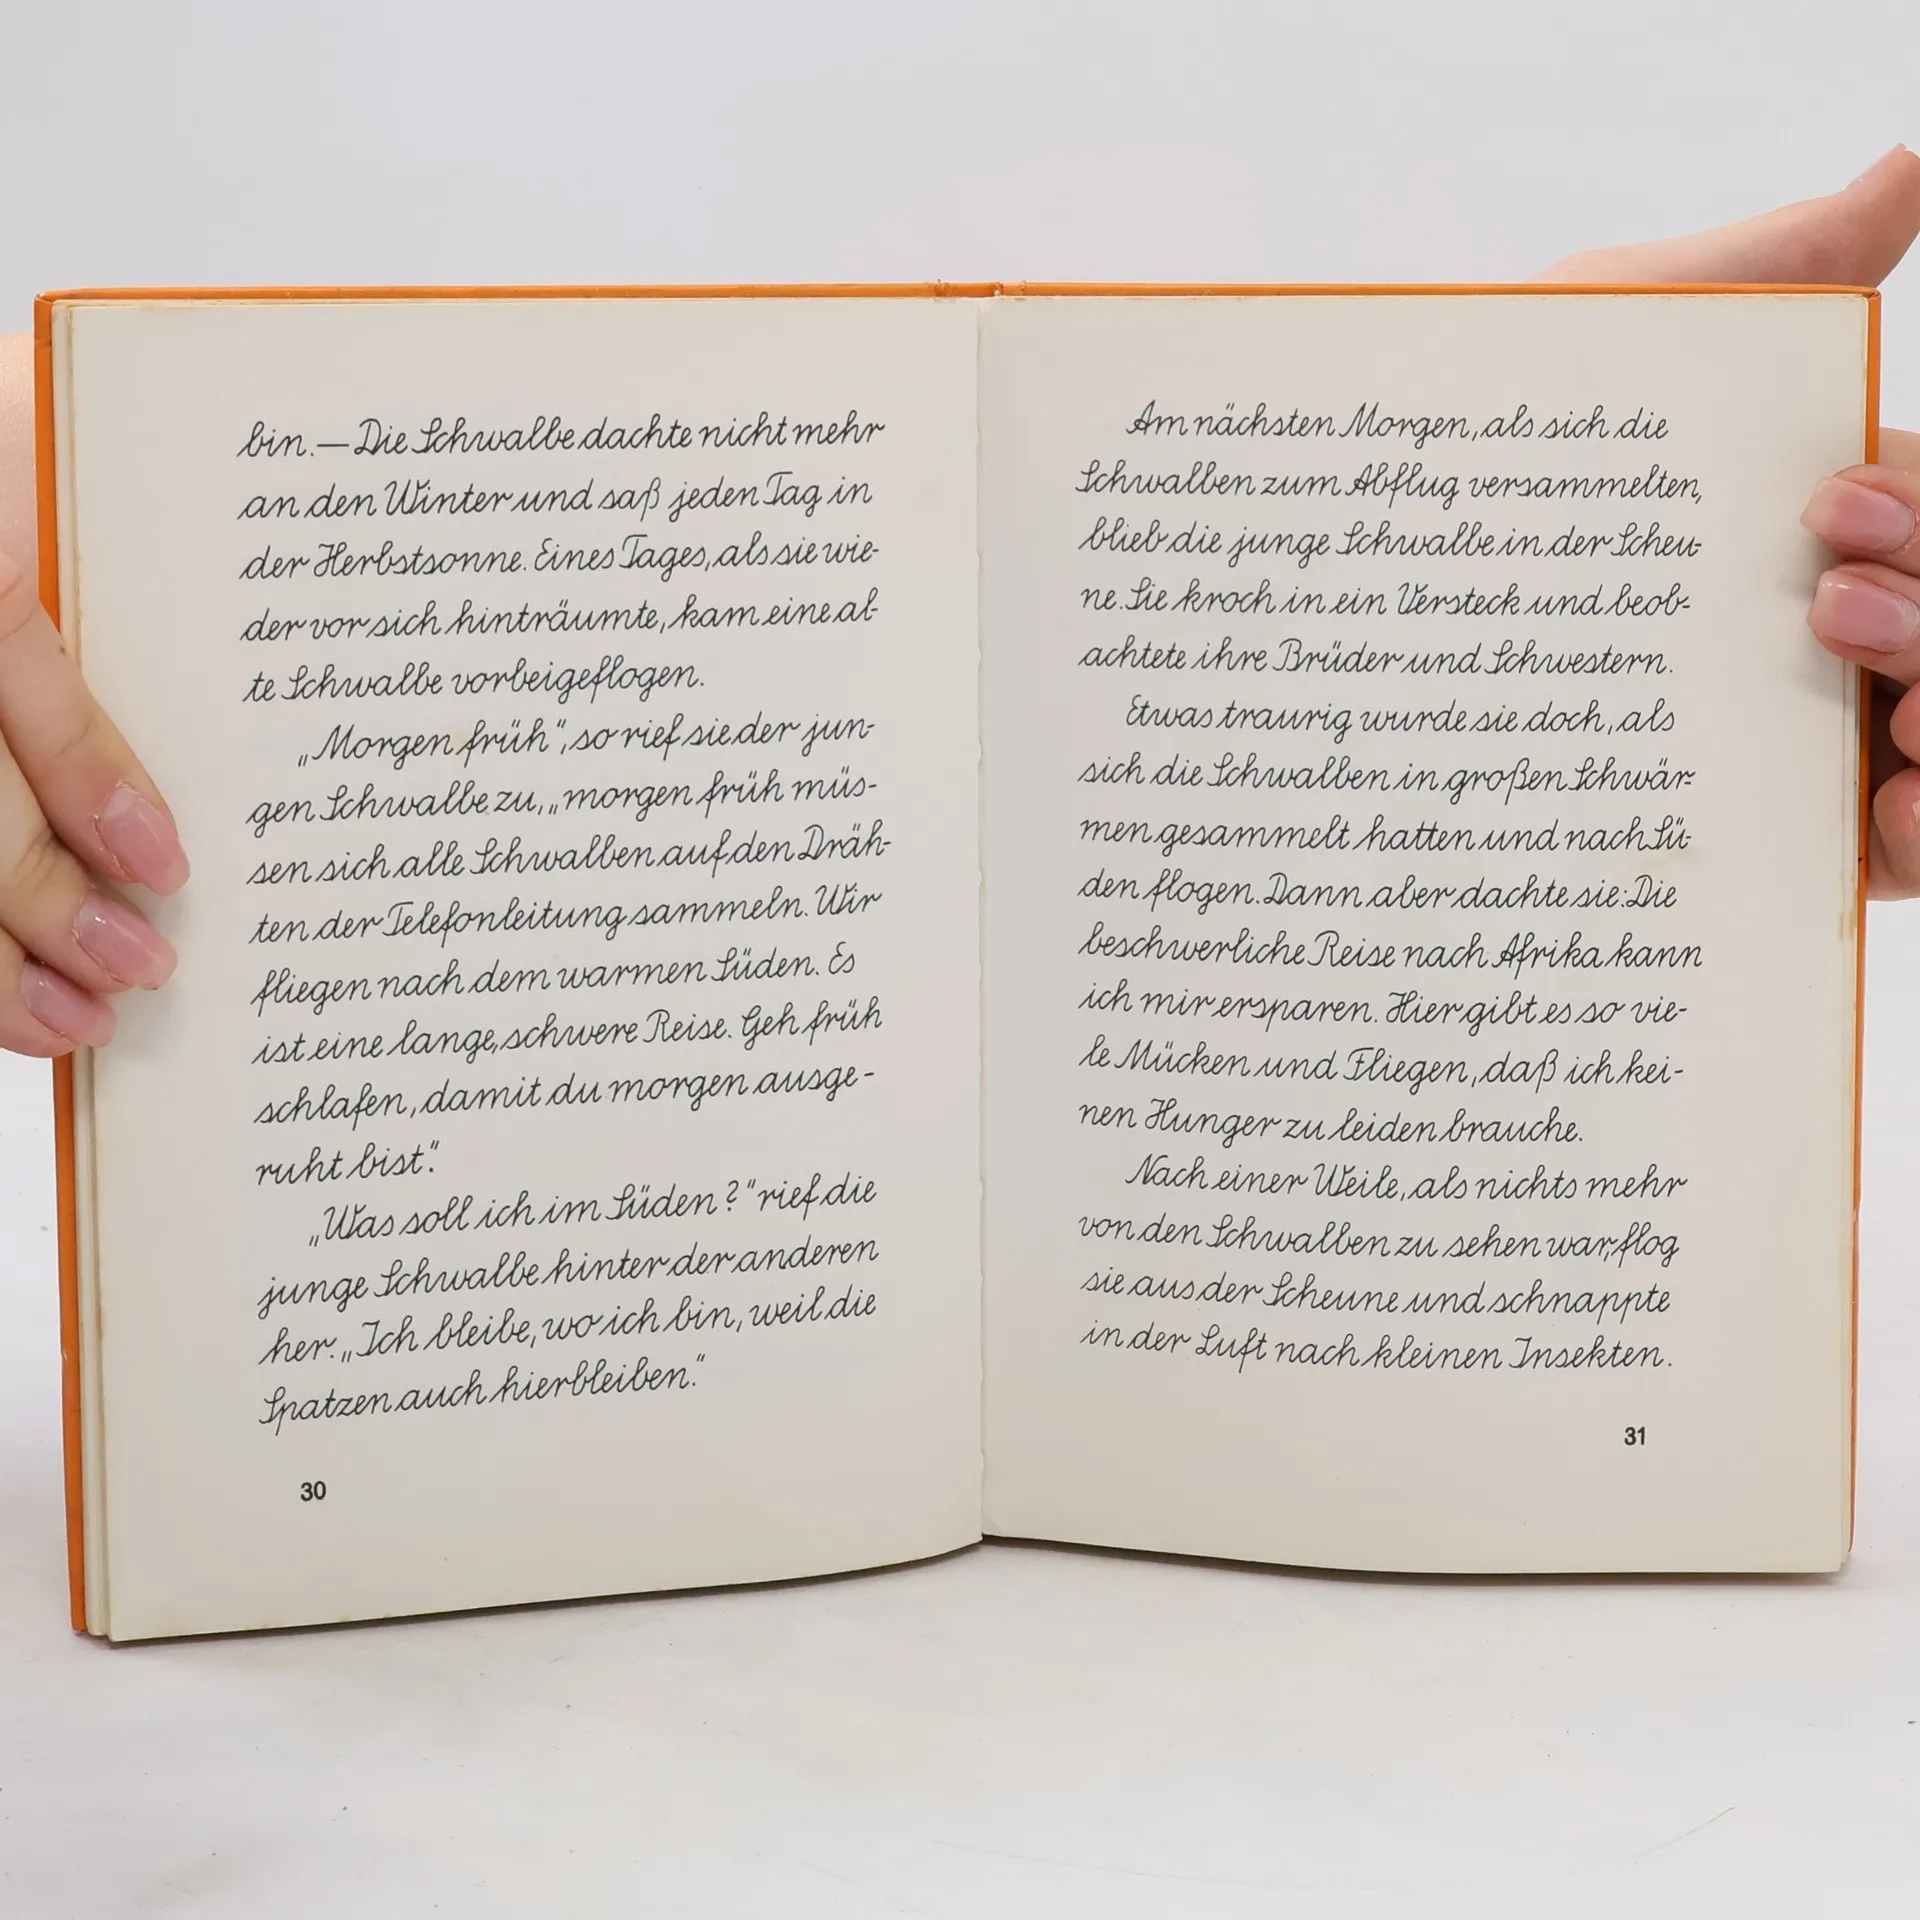 bin. — Die Schwalbe dachte nicht mehr
an den Winter und saß jeden Tag in
der Herbstsonne. Eines Tages, als sie wie-
der vor sich hinträumte, kam eine al-
te Schwalbe vorbeigeflogen.
„Morgen früh“, so rief sie der jun-
gen Schwalbe zu, „morgen früh müs-
sen sich alle Schwalben auf den Dräh-
ten der Telefonleitung sammeln. Wir
fliegen nach dem warmen Süden. Es
ist eine lange, schwere Reise. Geh früh
schlafen, damit du morgen ausge-
ruht bist“.
„Was soll ich im Süden?“ rief die
junge Schwalbe hinter der anderen
her. „Ich bleibe, wo ich bin, weil die
Spatzen auch hierbleiben.“
30
Am nächsten Morgen, als sich die
Schwalben zum Abflug versammelten,
blieb die junge Schwalbe in der Scheu-
ne. Sie kroch in ein Versteck und beob-
achtete ihre Brüder und Schwestern.
Etwas traurig wurde sie doch, als
sich die Schwalben in großen Schwär-
men gesammelt hatten und nach Sü-
den flogen. Dann aber dachte sie: Die
beschwerliche Reise nach Afrika kann
ich mir ersparen. Hier gibt es so vie-
le Mücken und Fliegen, daß ich kei-
nen Hunger zu leiden brauche.
Nach einer Weile, als nichts mehr
von den Schwalben zu sehen war, flog
sie aus der Scheune und schnappte
in der Luft nach kleinen Insekten.
31